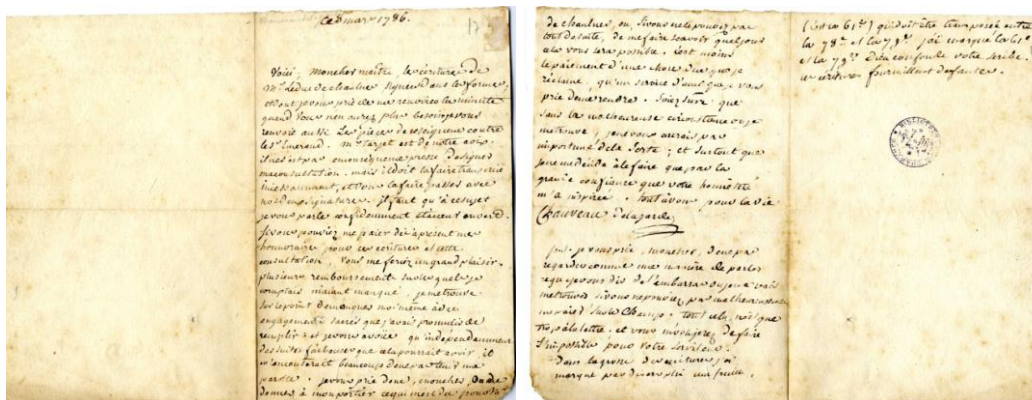 ce 8 mars 1786.
Voici, mon cher maître, les écritures de
Mr. Le duc de chaulnes signées dans les formes,
et dont je vous prie de me renvoyer la minute
quand vous n'en aurez plus besoin je vous
renvoie aussi les pièces de contre
le Sr. Mr. Target est de notre avis.
il ne s'est pas encore presse de signer
ma consultation. mais il doit la faire
incessamment, et vous la faire passer avec
sa signature. il faut qu'à ce sujet
je vous parle confidemment et à cœur ouvert.
si vous pouviez me paier dès à present mes
honoraires pour ces écritures et cette
consultation, vous me feriez un grand plaisir.
plusieurs remboursements sur lesquels je
comptais m'aiant manqué, je me trouve
sur le point de manquer moi même à des
engagements sacrés que j'avais promis de
remplir. et je vous avoue qu'independamment
des suites facheuses que cela pourrait avoir, il
m'en couterait beaucoup de ne pas tenir ma
parole. je vous prie donc, mon cher, de
donner à mon portier ce qui m'est dû pour Mr.
de chaulnes, ou, si vous ne le pouvez pas
tout de suite, de me faire scavoir quel jour
cela vous sera possible. c'est moins
le paiement d'une chose due que je
réclame, qu'un service d'ami que je vous
prie de me rendre. soiez sur que
sans la malheureuse circonstance où je
me trouve, je ne vous aurais pas
importuné de la sorte; et surtout que
je ne me décide à le faire que par la
grande confiance que votre honnêteté
m'a inspirée. tout à vous pour la vie
Chauveau de la garde
p.s. je vous prie, mon cher, de ne pas
regarder comme une manière de parler
ce que je vous dis de l'embarras où je vais
me trouver si vous ne pouvez pas malheureusement
sur le champ: tout cela, n'est que
trop à la lettre. et vous m'obligerez de faire
l'impossible pour votre serviteur.
Dans la grosse des écritures j'ai
marqué par un feuillet
(cotté 61e.) qui doit être transposé entre
la 78e. et la 79e. j'ai marqué la 61e
et la 79e. Dieu confonde votre scribe.
ces écritures fourmillent de fautes.